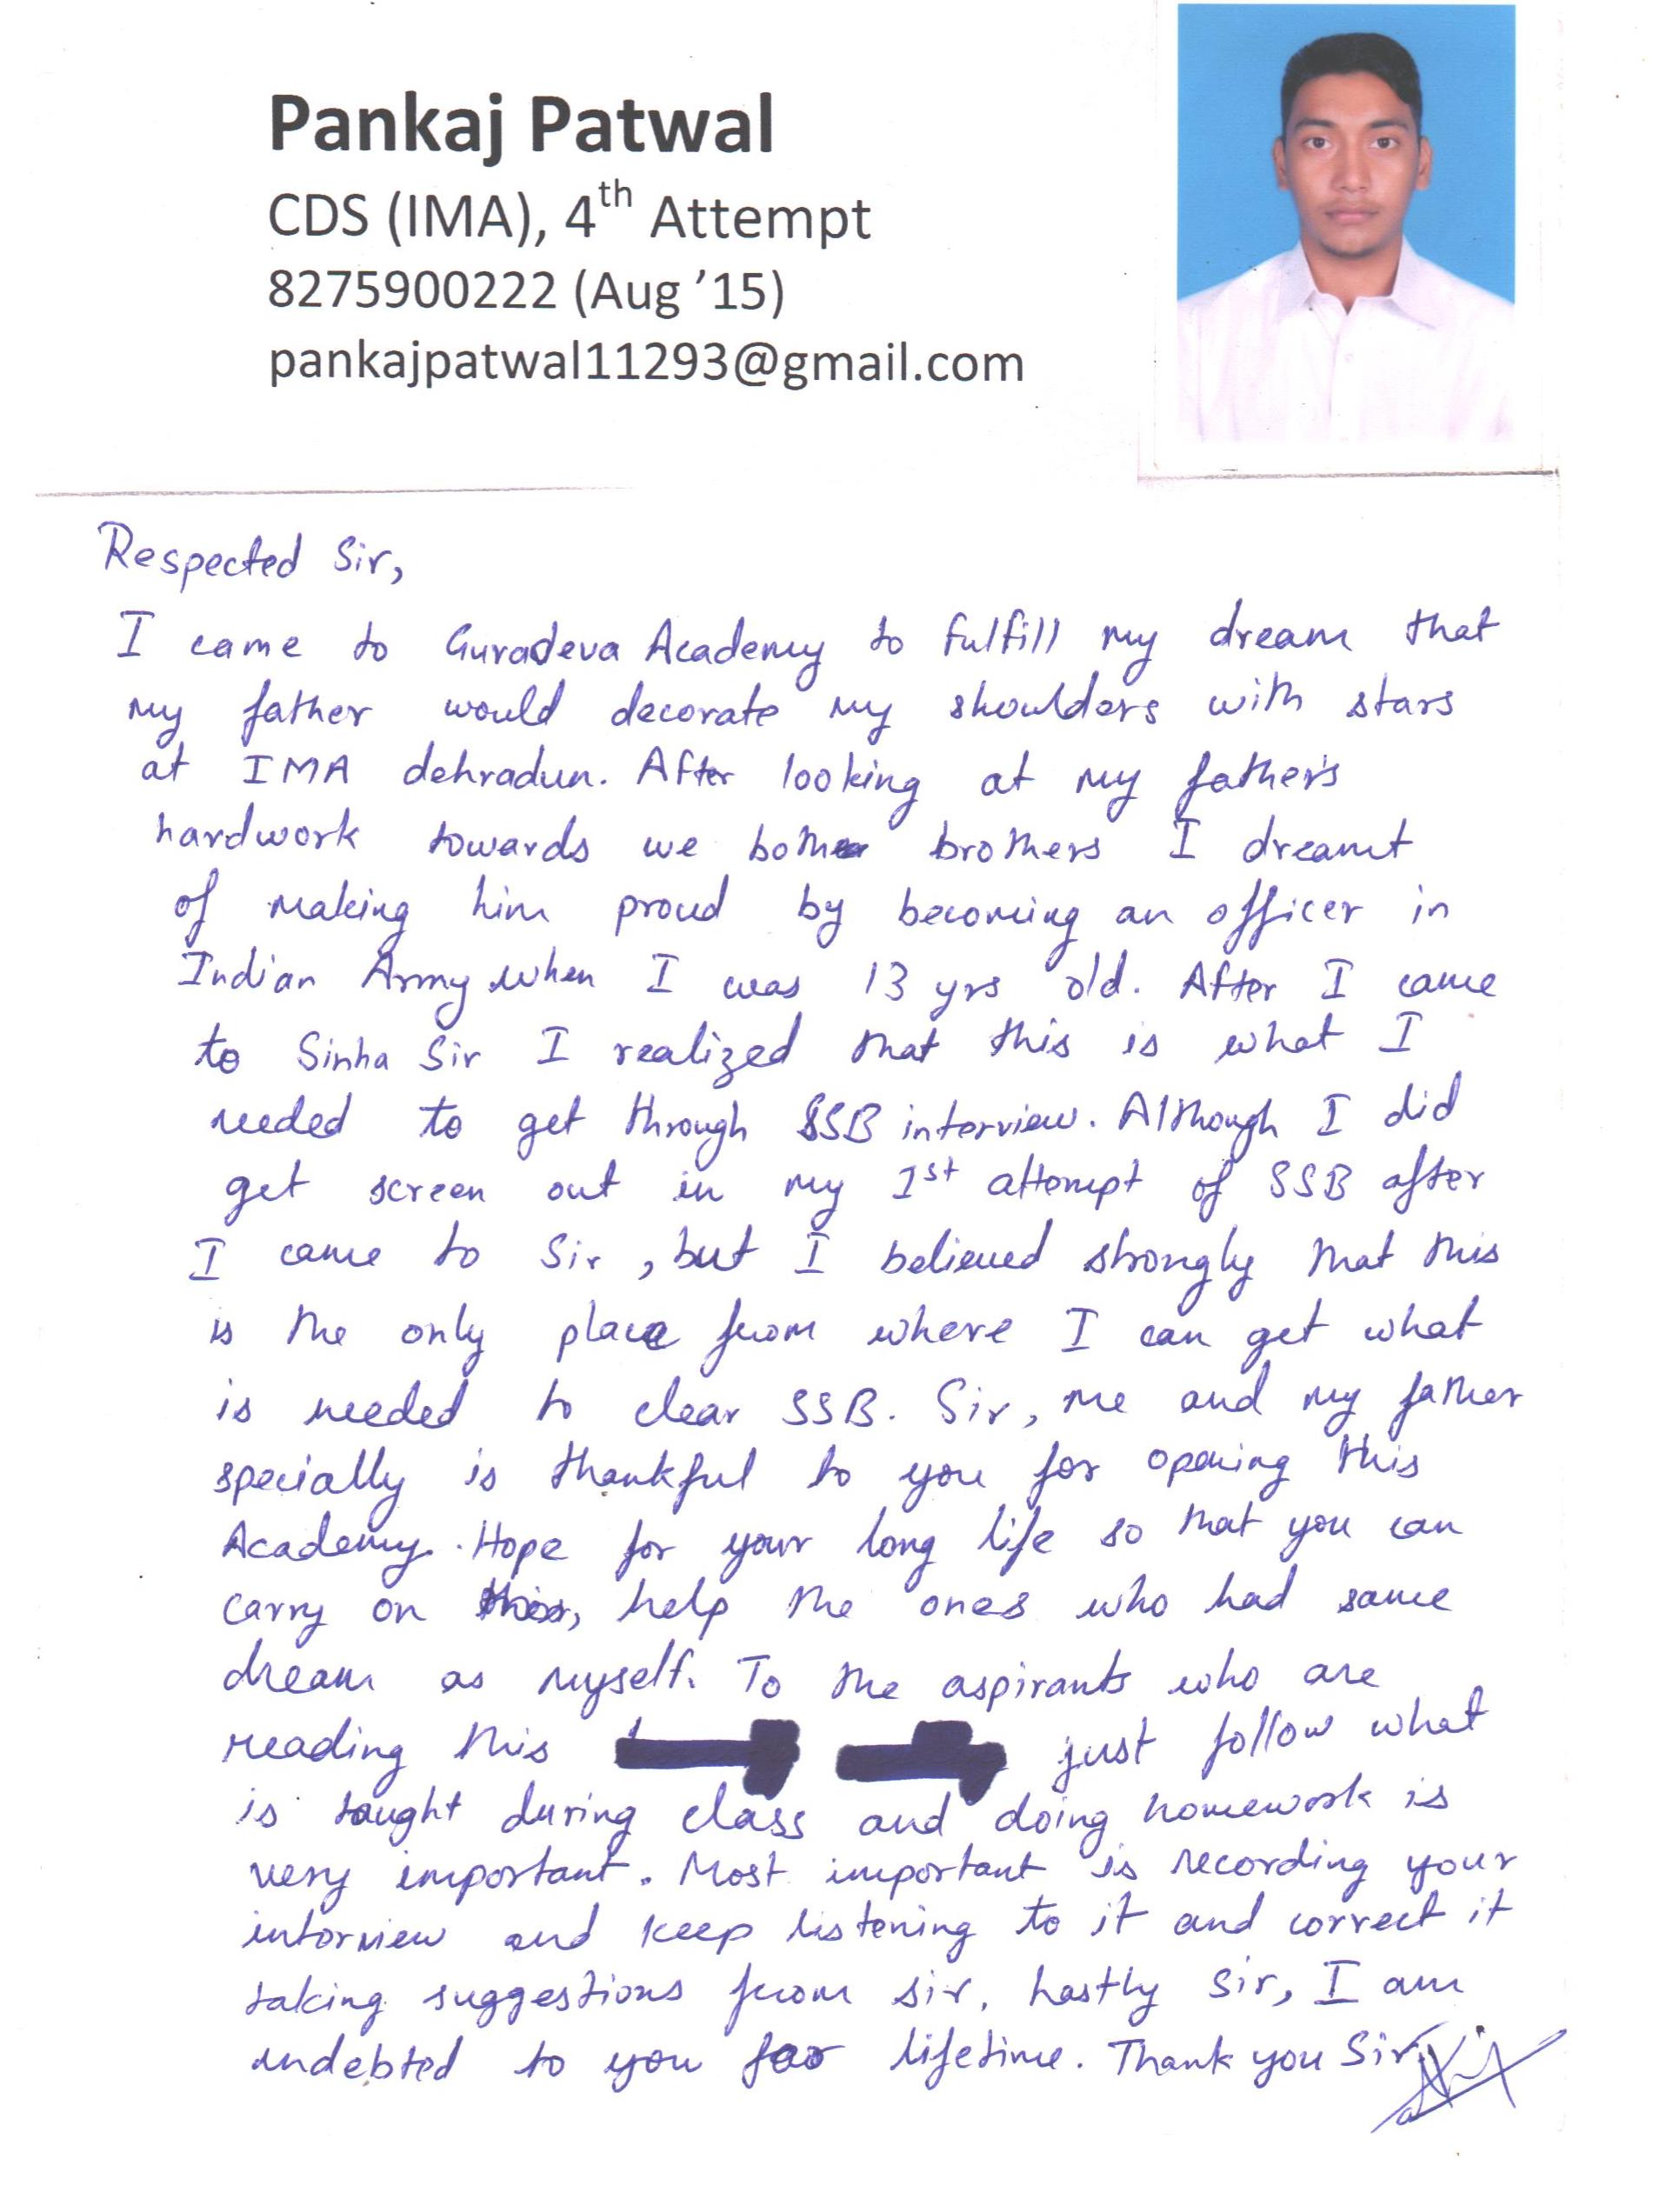 Pankaj Patwal
CDS (IMA), 4th Attempt
8275900222 (Aug '15)
pankajpatwal11293@gmail.com
Respected Sir,
I came to Guradeva Academy to fulfill my dream that
my father would decorate my shoulders with stars
at IMA dehradun. After looking at my father's
hardwork towards we both brothers I dreamt
of making him proud by becoming an officer in
Indian Army when I was 13 yrs old. After I came
to Sinha Sir I realized that this is what I
needed to get through SSB interview. Although I did
get screen out in my 1st attempt of SSB after
I came to Sir, but I believed strongly that this
is the only place from where I can get what
is needed to clear SSB. Sir, me and my father
specially is thankful to you for opening this
Academy. Hope for your long life so that you can
carry on this, help the ones who had same
dream as myself. To the aspirants who are
reading this just follow what
is taught during class and doing homework is
very important. Most important is recording your
interview and keep listening to it and correct it
taking suggestions from sir. Lastly Sir, I am
indebted to you for lifetime. Thank you Sir